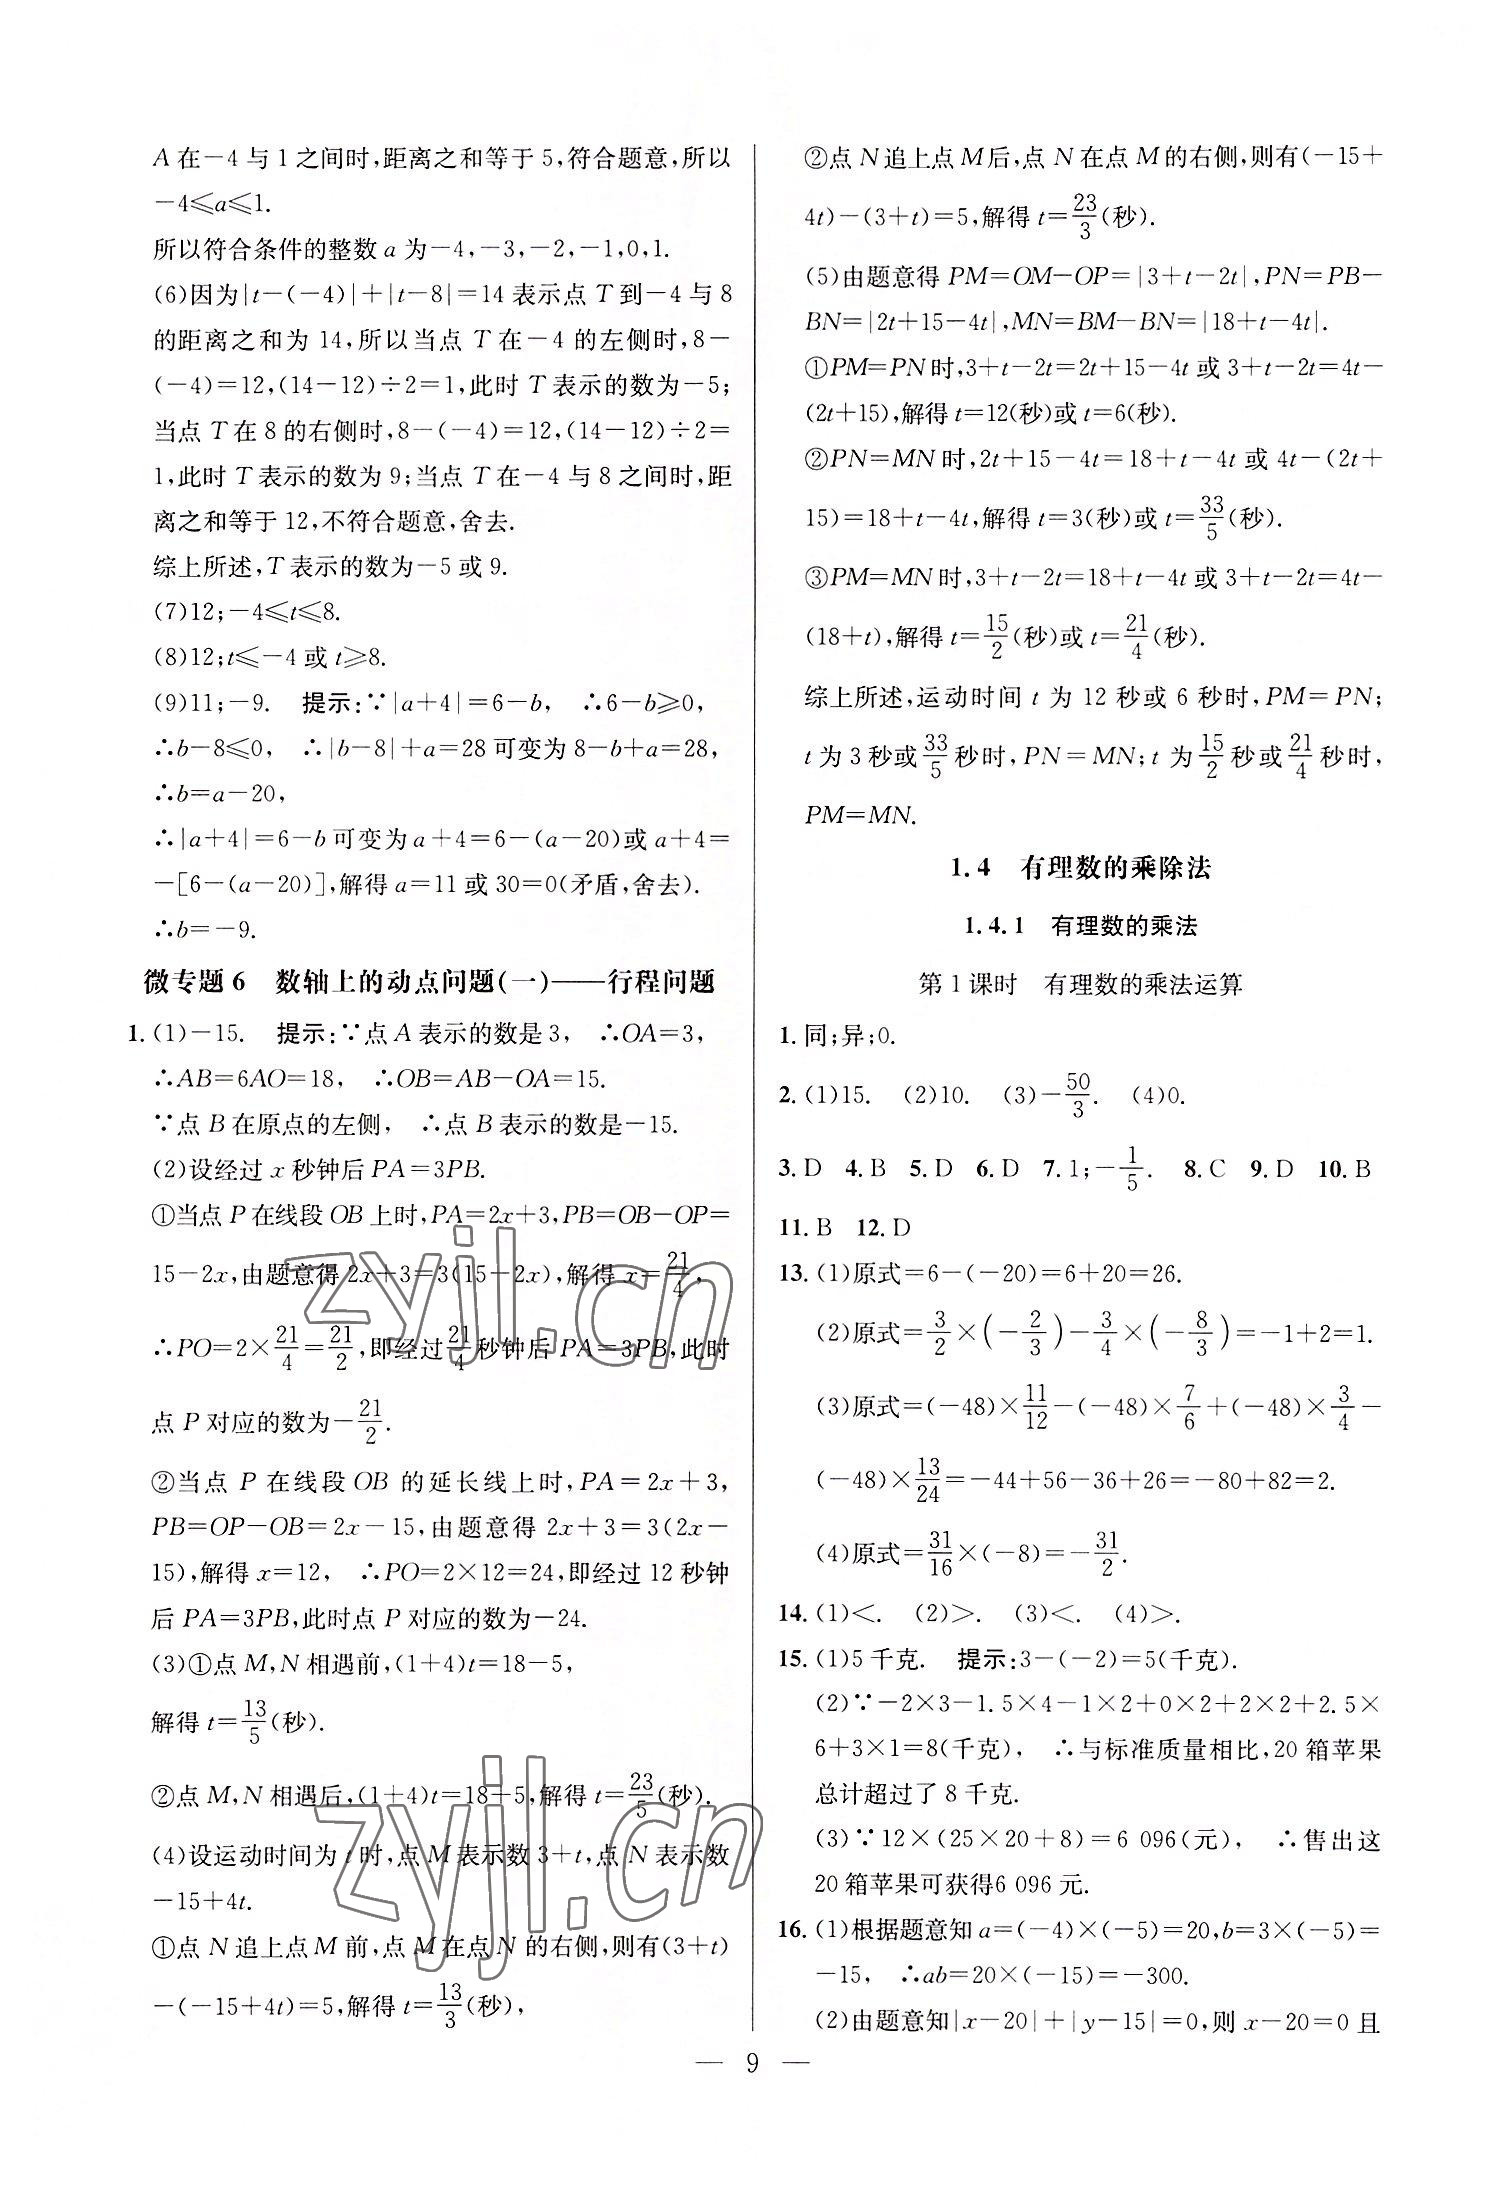 A在－4与1之间时,距离之和等于5,符合题意,所以
－4≤a≤1.
所以符合条件的整数a为－4,－3,－2,－1,0,1.
(6)因为|t－(－4)|＋|t－8|＝14表示点T到－4与8
的距离之和为14,所以当点T在－4的左侧时,8－
(－4)＝12,(14－12)÷2＝1,此时T表示的数为－5;
当点T在8的右侧时,8－(－4)＝12,(14－12)÷2＝
1,此时T表示的数为9;当点T在－4与8之间时,距
离之和等于12,不符合题意,舍去.
综上所述,T表示的数为－5或9.
(7)12;－4≤t≤8.
(8)12;t≤－4或t≥8.
(9)11;－9. 提示:∵|a＋4|＝6－b, ∴6－b≥0,
∴b－8≤0, ∴|b－8|＋a＝28可变为8－b＋a＝28,
∴b＝a－20,
∴|a＋4|＝6－b可变为a＋4＝6－(a－20)或a＋4＝
－[6－(a－20)],解得a＝11或30＝0(矛盾,舍去).
∴b＝－9.
微专题6 数轴上的动点问题(一)——行程问题
1.(1)－15. 提示:∵点A表示的数是3, ∴OA＝3,
∴AB＝6AO＝18, ∴OB＝AB－OA＝15.
∵点B在原点的左侧, ∴点B表示的数是－15.
(2)设经过x秒钟后PA＝3PB.
①当点P在线段OB上时,PA＝2x＋3,PB＝OB－OP＝
15－2x,由题意得2x＋3＝3(15－2x),解得x＝21/4,
∴PO＝2×21/4＝21/2,即经过21/4秒钟后PA＝3PB,此时
点P对应的数为－21/2.
②当点P在线段OB的延长线上时,PA＝2x＋3,
PB＝OP－OB＝2x－15,由题意得2x＋3＝3(2x－
15),解得x＝12, ∴PO＝2×12＝24,即经过12秒钟
后PA＝3PB,此时点P对应的数为－24.
(3)①点M,N相遇前,(1＋4)t＝18－5,
解得t＝13/5(秒).
②点M,N相遇后,(1＋4)t＝18＋5,解得t＝23/5(秒).
(4)设运动时间为t时,点M表示数3＋t,点N表示数
－15＋4t.
①点N追上点M前,点M在点N的右侧,则有(3＋t)
－(－15＋4t)＝5,解得t＝13/3(秒),
②点N追上点M后,点N在点M的右侧,则有(－15＋
4t)－(3＋t)＝5,解得t＝23/3(秒).
(5)由题意得PM＝OM－OP＝|3＋t－2t|,PN＝PB－
BN＝|2t＋15－4t|,MN＝BM－BN＝|18＋t－4t|.
①PM＝PN时,3＋t－2t＝2t＋15－4t或3＋t－2t＝4t－
(2t＋15),解得t＝12(秒)或t＝6(秒).
②PN＝MN时,2t＋15－4t＝18＋t－4t或4t－(2t＋
15)＝18＋t－4t,解得t＝3(秒)或t＝33/5(秒).
③PM＝MN时,3＋t－2t＝18＋t－4t或3＋t－2t＝4t－
(18＋t),解得t＝15/2(秒)或t＝21/4(秒).
综上所述,运动时间t为12秒或6秒时,PM＝PN;
t为3秒或33/5秒时,PN＝MN;t为15/2秒或21/4秒时,
PM＝MN.
1.4 有理数的乘除法
1.4.1 有理数的乘法
第1课时 有理数的乘法运算
1.同;异;0.
2.(1)15. (2)10. (3)－50/3. (4)0.
3.D 4.B 5.D 6.D 7.1;－1/5. 8.C 9.D 10.B
11.B 12.D
13.(1)原式＝6－(－20)＝6＋20＝26.
(2)原式＝3/2×(－2/3)－3/4×(－8/3)＝－1＋2＝1.
(3)原式＝(－48)×11/12－(－48)×7/6＋(－48)×3/4－
(－48)×13/24＝－44＋56－36＋26＝－80＋82＝2.
(4)原式＝31/16×(－8)＝－31/2.
14.(1)<. (2)>. (3)<. (4)>.
15.(1)5千克. 提示:3－(－2)＝5(千克).
(2)∵－2×3－1.5×4－1×2＋0×2＋2×2＋2.5×
6＋3×1＝8(千克), ∴与标准质量相比,20箱苹果
总计超过了8千克.
(3)∵12×(25×20＋8)＝6 096(元), ∴售出这
20箱苹果可获得6 096元.
16.(1)根据题意知a＝(－4)×(－5)＝20,b＝3×(－5)＝
－15, ∴ab＝20×(－15)＝－300.
(2)由题意知|x－20|＋|y－15|＝0,则x－20＝0且
— 9 —
zyjl.cn
zyjl.cn